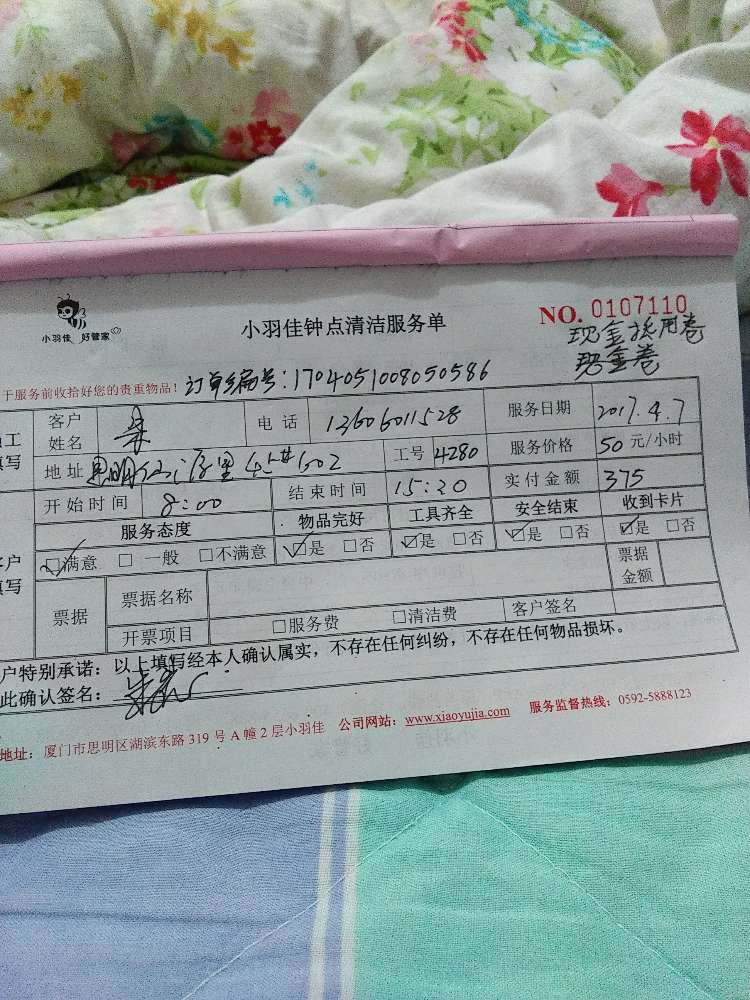 小羽佳 好管家
小羽佳钟点清洁服务单
NO. 0107110
现金抵用卷
现金卷
于服务前收拾好您的贵重物品！订单编号：1704051008050586
员工填写
客户姓名 电话 13606011528 服务日期 2017.4.7
地址 思明区 602 工号 4280 服务价格 50 元/小时
开始时间 8:00 结束时间 15:30 实付金额 375
服务态度 物品完好 工具齐全 安全结束 收到卡片
客户填写
☑满意 □ 一般 □不满意 ☑是 □否 ☑是 □否 ☑是 □否 ☑是 □否
票据 票据名称 票据金额
开票项目 □服务费 □清洁费 客户签名
户特别承诺：以上填写经本人确认属实，不存在任何纠纷，不存在任何物品损坏。
此确认签名：
地址：厦门市思明区湖滨东路 319 号 A 幢 2 层小羽佳 公司网站：www.xiaoyujia.com 服务监督热线：0592-5888123